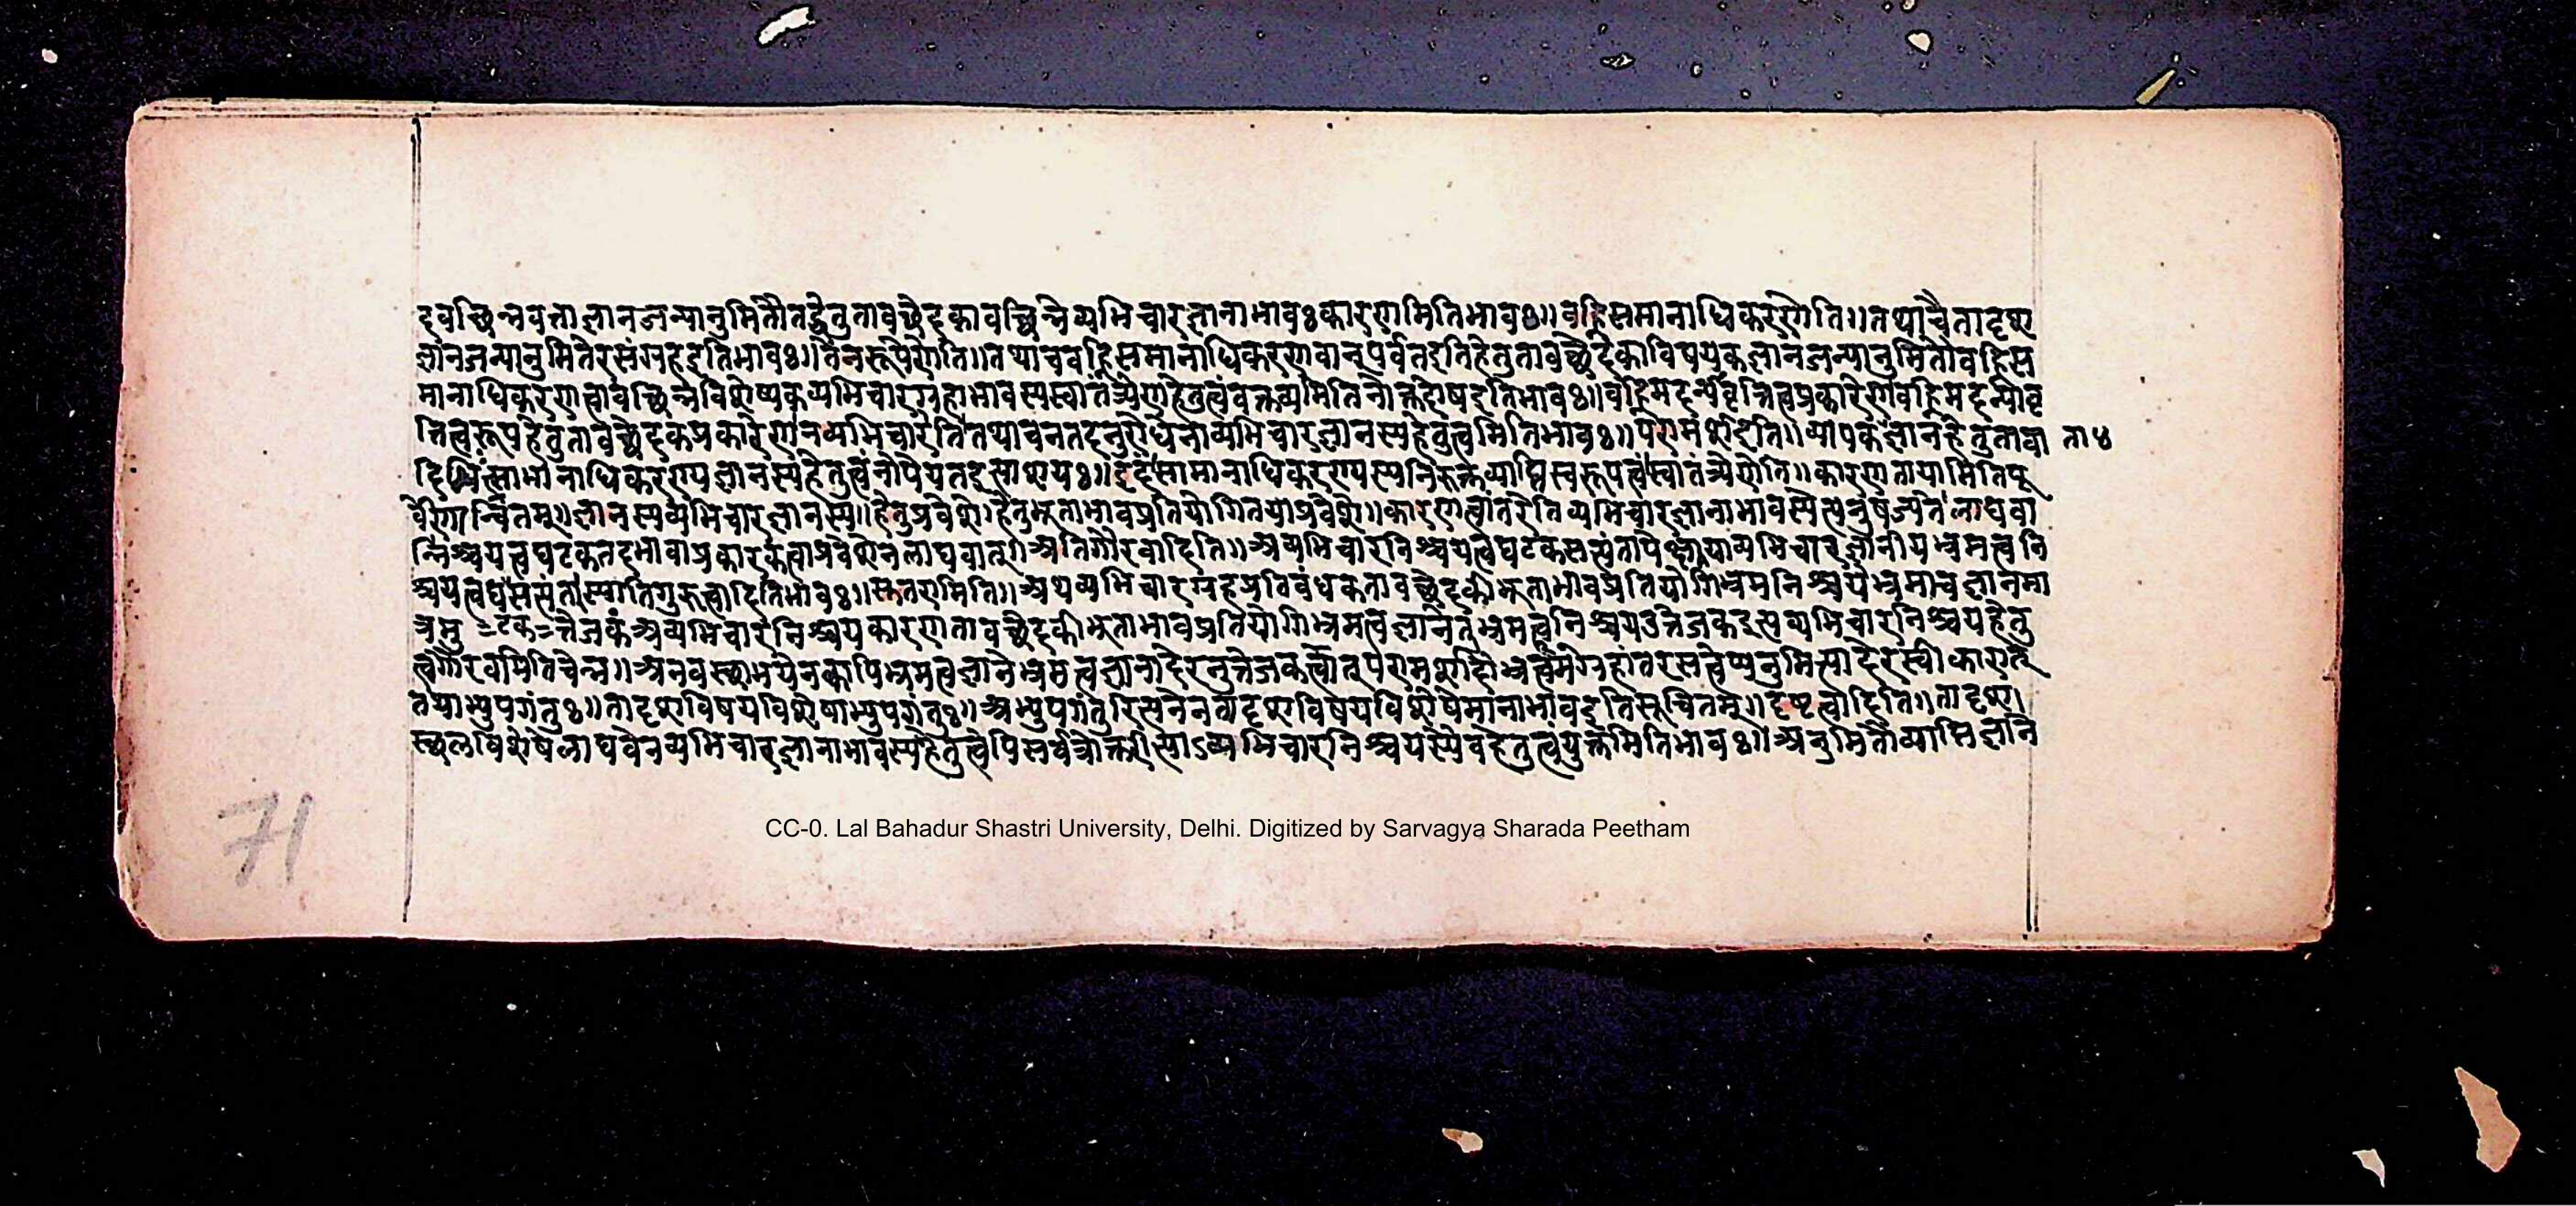 दवच्छिन्नवत्ताज्ञानजन्यानुमितौतद्धेतुतावच्छेदकावच्छिन्नेव्यभिचारज्ञानाभावःकारणमितिभावः॥वह्निसमानाधिकरणेति॥तथाचैतादृश
ज्ञानजन्यानुमितेरसंग्रहइतिभावः॥तेनरूपेणेति॥तथाचवह्निसमानाधिकरणवान्पर्वतइतिहेतुतावच्छेदकाविषयकज्ञानजन्यानुमितौवह्निस
मानाधिकरणत्वावच्छिन्नविशेष्यकव्यभिचारग्रहाभावस्यस्वातंत्र्येणहेतुत्वंवक्तव्यमितिनोक्तदोषइतिभावः॥वह्निमदन्यवृत्तित्वप्रकारेणवह्निमदन्यावृ
त्तित्वरूपहेतुतावच्छेदकप्रकारेणनव्यभिचारेतितथाचनतदनुरोधेनाव्यभिचारज्ञानस्यहेतुत्वमितिभावः॥परामर्शइति॥व्यापकज्ञानहेतुतावा ता४
सामानाधिकरण्यज्ञानस्यहेतुत्वंनोपेयतइत्याशयः॥इदंसामानाधिकरण्यस्यनिरुक्तव्याप्तिस्वरूपत्वंस्वातंत्र्येणेति॥कारणतायामितिपू
र्वेणान्वितम्॥ज्ञानस्यव्यभिचारज्ञानस्य॥हेतुप्रवेशे॥हेतुभूताभावप्रतियोगितयाप्रवेशे॥कारणत्वांतरेतिव्यभिचारज्ञानाभावस्येत्यनुषज्यतेलाघवा
न्निश्चयत्वघटकतदभावाप्रकारकत्वाप्रवेशेनलाघवात्॥अतिगौरवादिति॥अव्यभिचारनिश्चयत्वघटकव्यभिचारज्ञानीयभ्रमत्वनि
श्चयत्वघस्यातिगुरुत्वादितिभावः॥मितरामिति॥अथव्यभिचारग्रहप्रतिबंधकतावच्छेदकीभूताभावप्रतियोगिभ्रमनिश्चयेभ्रमात्वज्ञानमा
त्रमु =टक=त्तेजकंअव्यभिचारनिश्चयकारणतावच्छेदकीभूताभावप्रतियोगिभ्रमत्वज्ञानेतुभ्रमत्वनिश्चयउत्तेजकइत्यव्यभिचारनिश्चयहेतु
त्वेगौरवमितिचेन्न॥अनवस्थाभयेनक्वापिभ्रमत्वज्ञानेभ्रमत्वज्ञानादेरनुत्तेजकत्वात्परामर्शादौभ्रत्वमंग्रहांतरसत्वेप्यनुमित्यादेरस्वीकारात्
तयाभ्युपगंतुः॥तादृशविषयविशेषाभ्युपगंतुः॥अभ्युपगंतुरित्यनेनतादृशविषयविशेषेमानाभावइतिसूचितम्॥दृष्टत्वादिति॥तादृश।
स्थलविशेषेलाघवेनव्यभिचारज्ञानाभावस्यहेतुत्वेपिसर्वत्रोक्तरीत्याऽव्यभिचारनिश्चयस्यैवहेतुत्वंयुक्तमितिभावः॥अनुमितौव्याप्तिज्ञानि
71
CC-0. Lal Bahadur Shastri University, Delhi. Digitized by Sarvagya Sharada Peetham